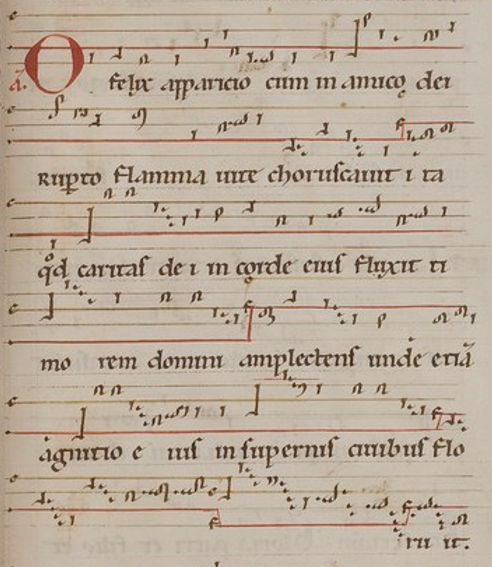 ā. O felix apparicio cum in amico dei
Rupto flamma uite choruscauit i ta
qd caritas de i in corde eius fluxit ti
mo rem domini amplectens unde etiā
agnitio e ius in supernis ciuibus flo
ru it.